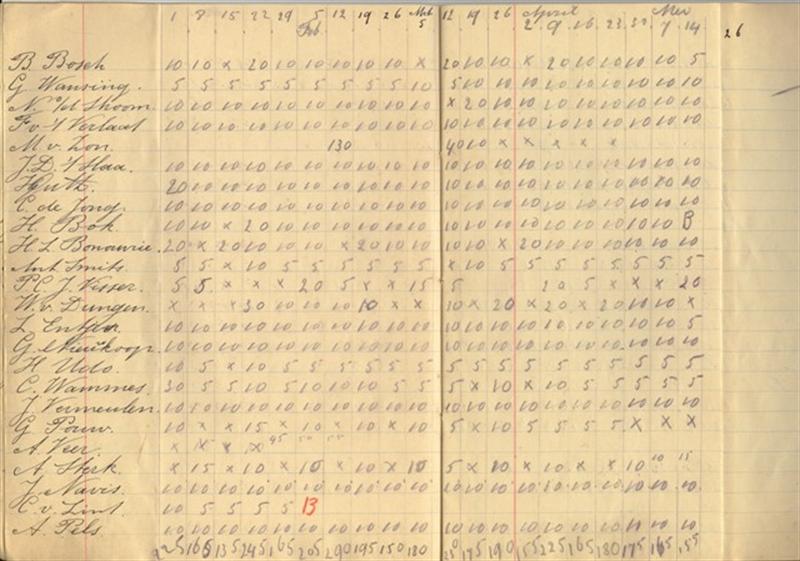 1 8 15 22 29 5 12 19 26 5 12 19 26 2 9 16 23 30 7 14 26
Feb Mrt April Mei
B Bosch 10 10 x 20 10 10 10 10 10 x 20 10 10 x 20 10 10 10 10 5
G Wansing. 5 5 5 5 5 5 5 5 5 10 5 10 10 10 10 10 10 10 10 10
N. v/d Shoom 10 10 10 10 10 10 10 10 10 10 x 20 10 10 10 10 10 10 10 10
F v 't Verlaat 10 10 10 10 10 10 10 10 10 10 10 10 10 10 10 10 10 10 10 10
M v. Zon. 130 40 10 x x x x x
J. D. 't Haa. 10 10 10 10 10 10 10 10 10 10 10 10 10 10 10 10 10 10 10 10
20 10 10 10 10 10 10 10 10 10 10 10 10 10 10 10 10 10 10 10
C. de Jong. 10 10 10 10 10 10 10 10 10 10 10 10 10 10 10 10 10 10 10 10
H. Bok 10 10 x 20 10 10 10 10 10 10 10 10 10 10 10 10 10 10 10 B
H. L. 20 x 20 10 10 10 x 20 10 10 10 10 x 20 10 10 10 10 10 10
Ant Smits. 5 5 x 10 5 5 5 5 5 5 x 10 5 5 5 5 5 5 5 5
P.C. J. Visser. 5 5 x x x 20 5 x x 15 5 20 5 x x x 20
W. v. Dungen x x x 30 10 10 10 10 x x 10 x 20 x 20 x 20 10 10 x
L. 10 10 10 10 10 10 10 10 10 10 10 10 10 10 10 10 10 10 10 5
G. Nieuwkoop. 10 10 10 10 10 10 10 10 10 10 10 10 10 10 10 10 10 10 10 10
H Udo. 10 5 x 10 5 5 5 5 5 5 5 5 5 5 5 5 5 5 5 5
C. Wammes. 30 5 5 10 5 10 10 10 5 5 5 x 10 x 10 5 5 5 5 5
J. Vermeulen. 10 10 10 10 10 10 10 10 10 10 10 10 10 10 10 10 10 10 10 10
G. Pouw. 10 x x 15 x 10 x 10 x 10 5 x 10 5 5 5 5 x x x
A. Veer. x x x x
A. Sterk x 15 x 10 x 10 x 10 x 10 5 x 10 x 10 x x 10 10 15
J. Navis. 10 10 10 10 10 10 10 10 10 10 10 10 10 10 10 10 10 10 10 10
C v. Lint. 10 5 5 5 5 13
A. Pels 10 10 10 10 10 10 10 10 10 10 10 10 10 10 10 10 10 10 10 10
225 165 135 245 165 205 290 195 150 180 175 190 155 225 165 180 175 165 155